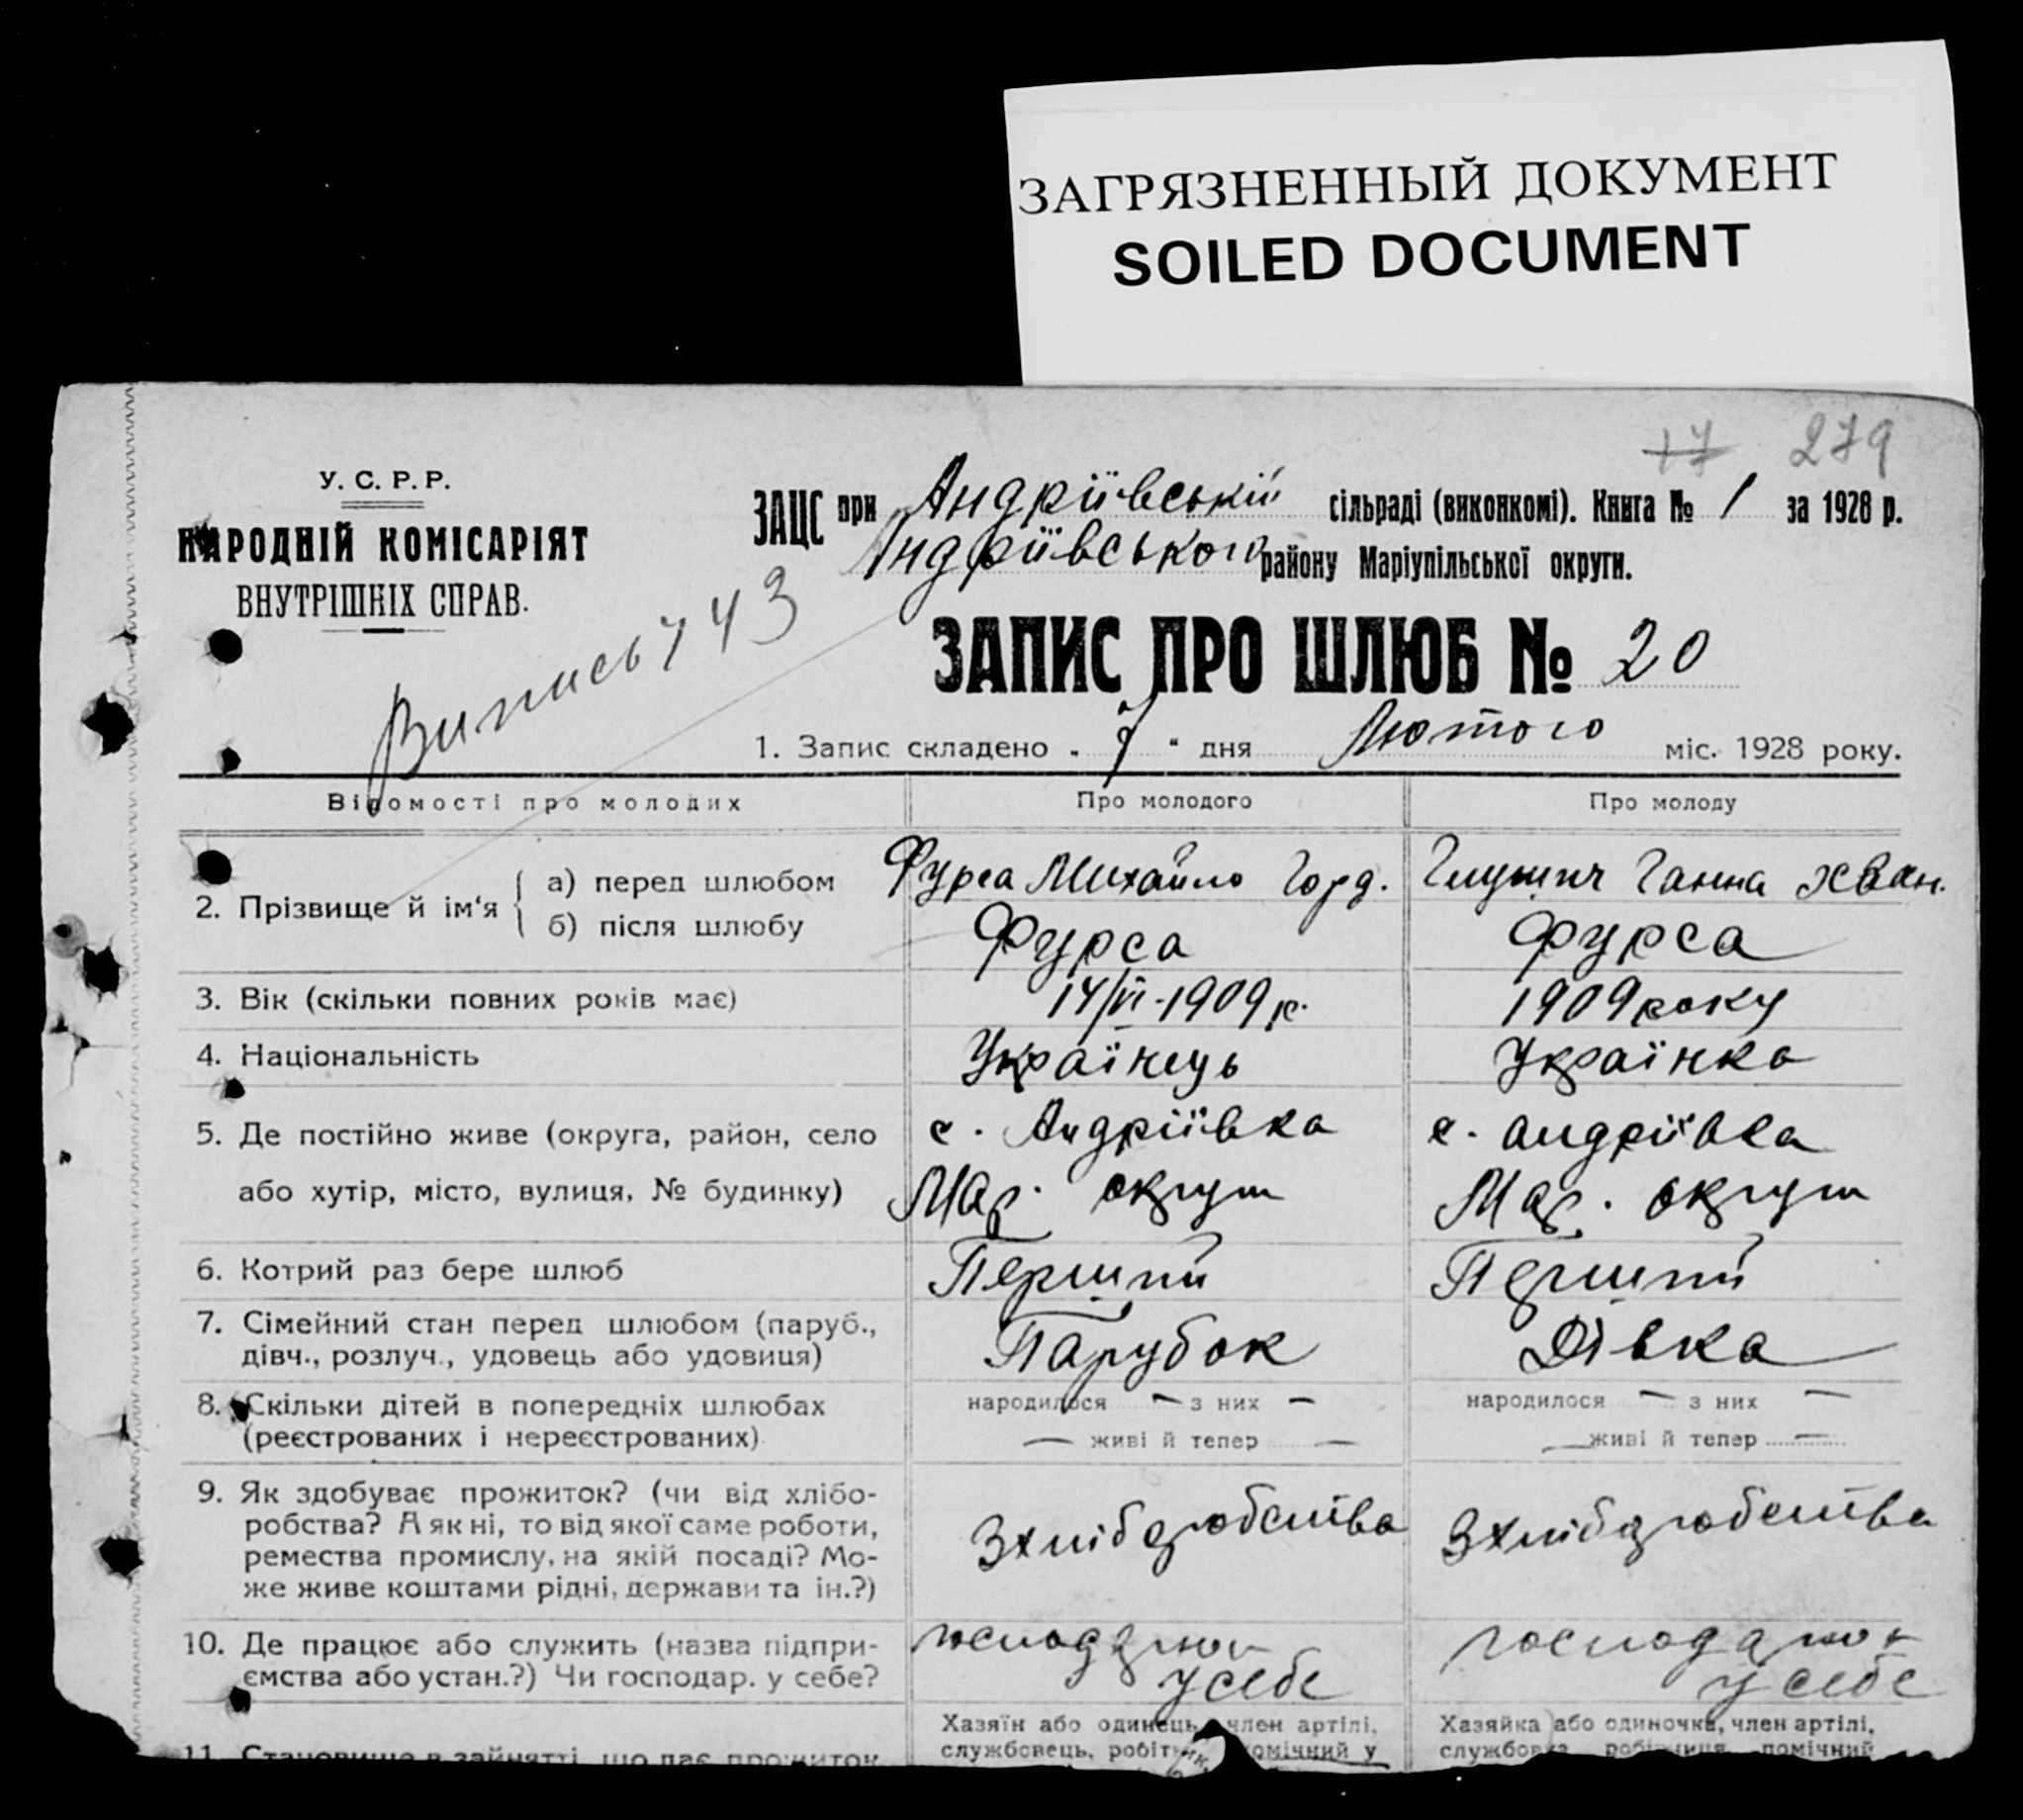 ЗАГРЯЗНЕННЫЙ ДОКУМЕНТ
SOILED DOCUMENT
17 279
У. С. Р. Р.
НАРОДНІЙ КОМІСАРІЯТ
ВНУТРІШНІХ СПРАВ.
ЗАЦС при Андріївській сільраді (виконкомі). Книга № 1 за 1928 р.
Андріївського району Маріупільської округи.
Випись 743
ЗАПИС ПРО ШЛЮБ № 20
1. Запис складено „ 7 “ дня Лютого міс. 1928 року.
Відомості про молодих Про молодого Про молоду
2. Прізвище й ім‘я
а) перед шлюбом Фурса Михайло Горд. Ганна
б) після шлюбу Фурса Фурса
3. Вік (скільки повних років має) 14/VI-1909 р. 1909 року
4. Національність Українець Українка
5. Де постійно живе (округа, район, село с. Андріївка с. Андріївка
або хутір, місто, вулиця, № будинку) Мар. округи Мар. округи
6. Котрий раз бере шлюб Перший Перший
7. Сімейний стан перед шлюбом (паруб., Парубок Дівка
дівч., розлуч., удовець або удовиця)
8. Скільки дітей в попередніх шлюбах народилося — з них — народилося — з них —
(реєстрованих і нереєстрованих) — живі й тепер — — живі й тепер —
9. Як здобуває прожиток? (чи від хлібо-
робства? А як ні, то від якої саме роботи, З хліборобства З хліборобства
ремества промислу, на якій посаді? Мо-
же живе коштами рідні, держави та ін.?)
10. Де працює або служить (назва підпри-
ємства або устан.?) Чи господар. у себе? у себе у себе
Хазяїн або одинець, член артілі, Хазяйка або одиночка, член артілі,
11. Становище в занятті, що дає прожиток службовець, помічний у службовка помічний